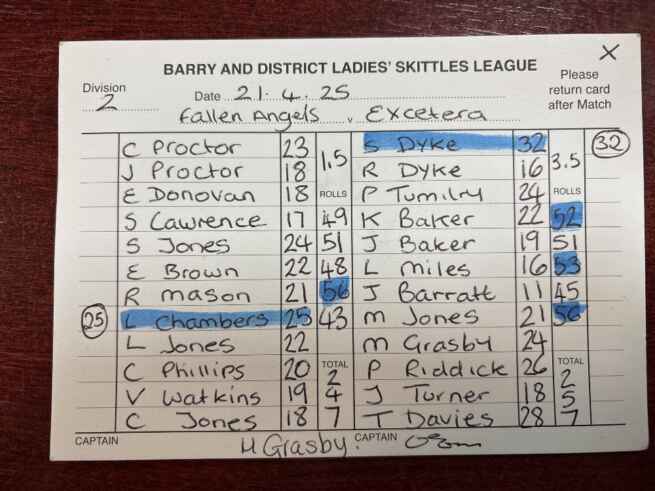 X
BARRY AND DISTRICT LADIES' SKITTLES LEAGUE
Division 2 Date 21.4.25 Please return card after Match
Fallen Angels v Excetera
C Proctor 23 1.5 S Dyke 32 3.5 32
J Proctor 18 R Dyke 16
E Donovan 18 ROLLS P Tumilry 24 ROLLS
S Lawrence 17 49 K Baker 22 52
S Jones 24 51 J Baker 19 51
E Brown 22 48 L Miles 16 53
R Mason 21 56 J Barratt 11 45
25 L Chambers 25 43 M Jones 21 56
L Jones 22 M Grasby 24
C Phillips 20 TOTAL 2 P Riddick 26 TOTAL 2
V Watkins 19 4 J Turner 18 5
C Jones 18 7 T Davies 28 7
CAPTAIN M Grasby. CAPTAIN